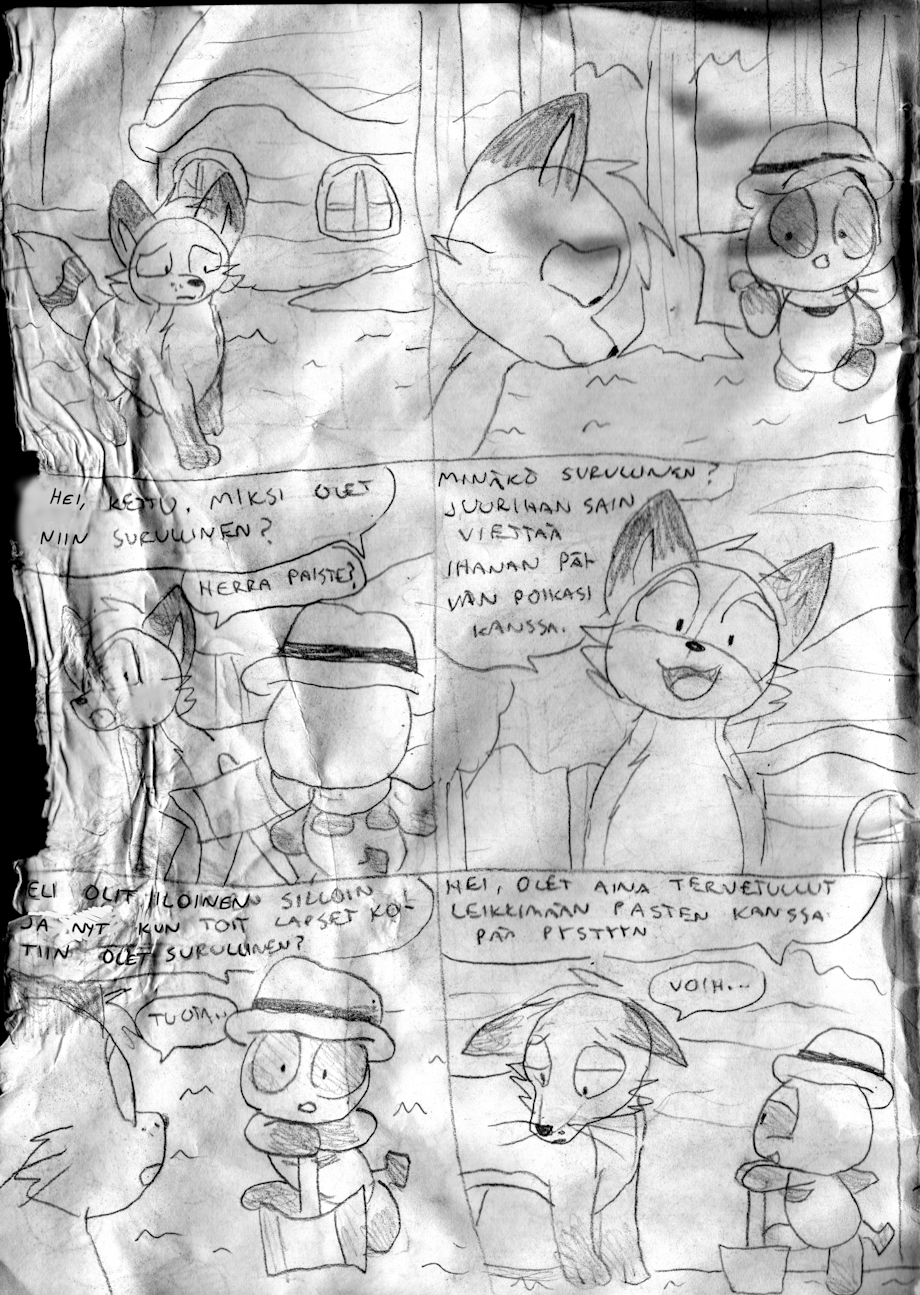 HEI, KETTU. MIKSI OLET
NIIN SURULLINEN?
HERRA PAISTE?
MINÄKÖ SURULLINEN?
JUURIHAN SAIN
VIETTÄÄ
IHANAN PÄI-
VÄN POIKASI
KANSSA.
ELI OLIT ILOINEN SILLOIN
JA NYT KUN TOIT LAPSET KO-
TIIN OLET SURULLINEN?
TUOTA..
HEI, OLET AINA TERVETULLUT
LEIKKIMÄÄN PASTEN KANSSA.
PÄÄ PYSTYYN
VOIH...